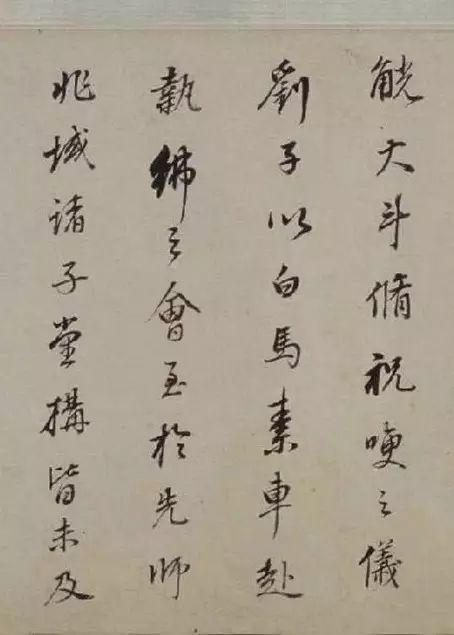 觥大斗脩祝哽之儀
劉子以白馬素車赴
執紼之會至於先師
兆域諸子堂構皆未及